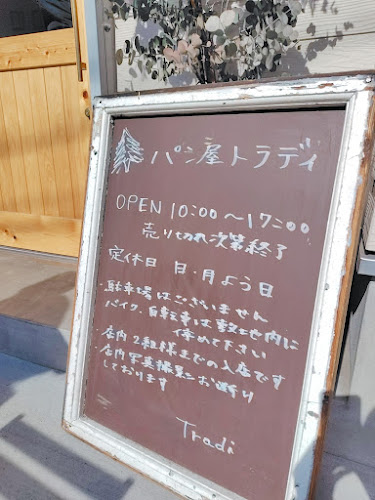 パン屋トラディ
OPEN 10:00〜17:00
売り切れ次第終了
定休日 日・月よう日
・駐車場はございません
バイク、自転車は敷地内に
停めて下さい
・店内2組様までの入店です
・店内写真撮影お断り
しております
Tradi